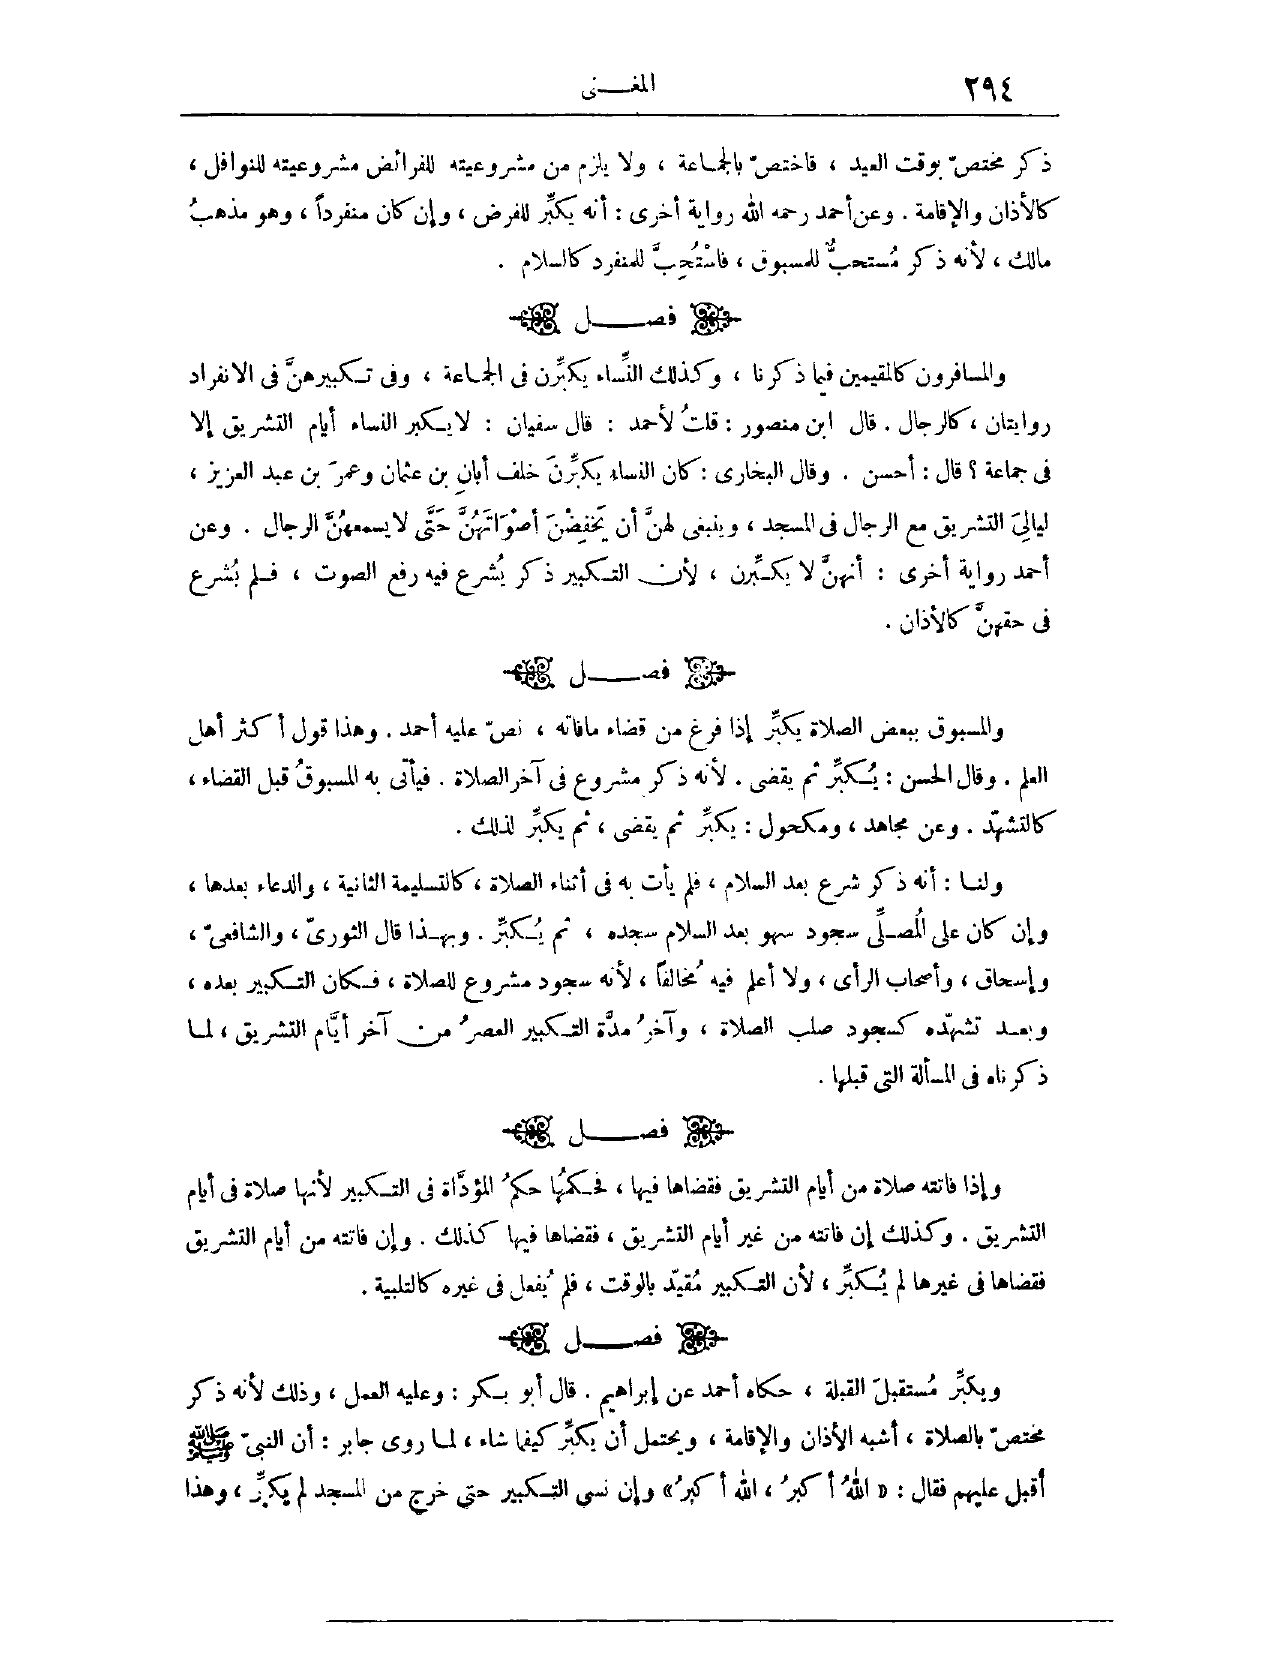 ٢٩٤ المغنى
ذكر مختصّ بوقت العيد ، فاختصّ بالجماعة ، ولا يلزم من مشروعيته للفرائض مشروعيته للنوافل ،
كالأذان والإقامة . وعن أحمد رحمه الله رواية أخرى : أنه يكبِّر للفرض ، وإن كان منفرداً ، وهو مذهبُ
مالك ، لأنه ذكر مُستحبٌّ للمسبوق ، فاسْتُحِبَّ للمنفرد كالسلام .
فصـــل
والمسافرون كالمقيمين فيما ذكرنا ، وكذلك النِّساء يكبِّرن فى الجماعة ، وفى تكبيرهنَّ فى الانفراد
روايتان ، كالرجال . قال ابن منصور : قلتُ لأحمد : قال سفيان : لا يكبر النساء أيام التشريق إلا
فى جماعة ؟ قال : أحسن . وقال البخارى : كان النساء يكبِّرنَ خلف أبانِ بن عثمان وعمرَ بن عبد العزيز ،
ليالىَ التشريق مع الرجال فى المسجد ، وينبغى لهنَّ أن يَخفِضْنَ أصْوَاتَهُنَّ حَتَّى لا يسمعهُنَّ الرجال . وعن
أحمد رواية أخرى : أنهنَّ لا يكبِّرن ، لأن التكبير ذكر يُشرع فيه رفع الصوت ، فلم يُشرع
فى حقهنَّ كالأذان .
فصـــل
والمسبوق ببعض الصلاة يكبِّر إذا فرغ من قضاء مافاته ، نصّ عليه أحمد . وهذا قول أكثر أهل
العلم . وقال الحسن : يُكبِّر ثم يقضى . لأنه ذكر مشروع فى آخر الصلاة . فيأتى به المسبوقُ قبل القضاء ،
كالتشهّد . وعن مجاهد ، ومكحول : يكبِّر ثم يقضى ، ثم يكبِّر لذلك .
ولنا : أنه ذكر شرع بعد السلام ، فلم يأت به فى أثناء الصلاة ، كالتسليمة الثانية ، والدعاء بعدها ،
وإن كان على المُصلِّى سجود سهو بعد السلام سجده ، ثم يُكبِّر . وبهذا قال الثورىّ ، والشافعىّ ،
وإسحاق ، وأصحاب الرأى ، ولا أعلم فيه مُخالفاً ، لأنه سجود مشروع للصلاة ، فكان التكبير بعده ،
وبعد تشهّده كسجود صلب الصلاة ، وآخرُ مدَّة التكبير العصرُ من آخر أيَّام التشريق ، لما
ذكرناه فى المسألة التى قبلها .
فصـــل
وإذا فاتته صلاة من أيام التشريق فقضاها فيها ، فحكمُها حكمُ المؤدَّاة فى التكبير لأنها صلاة فى أيام
التشريق . وكذلك إن فاتته من غير أيام التشريق ، فقضاها فيها كذلك . وإن فاتته من أيام التشريق
فقضاها فى غيرها لم يُكبِّر ، لأن التكبير مُقيّد بالوقت ، فلم يُفعل فى غيره كالتلبية .
فصـــل
ويكبِّر مُستقبلَ القبلة ، حكاه أحمد عن إبراهيم . قال أبو بكر : وعليه العمل ، وذلك لأنه ذكر
مختصّ بالصلاة ، أشبه الأذان والإقامة ، ويحتمل أن يكبِّر كيفما شاء ، لما روى جابر : أن النبىّ ﷺ
أقبل عليهم فقال : « اللهُ أكبرُ ، الله أكبرُ » وإن نسى التكبير حتى خرج من المسجد لم يكبِّر ، وهذا